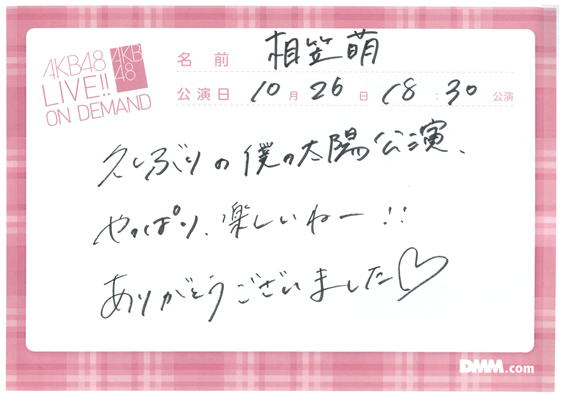 AKB48
LIVE!!
ON DEMAND
AKB
48
名前 相笠萌
公演日 10月26日 18:30公演
久しぶりの僕の太陽公演、
やっぱり、楽しいねー!!
ありがとうございました♡
DMM.com